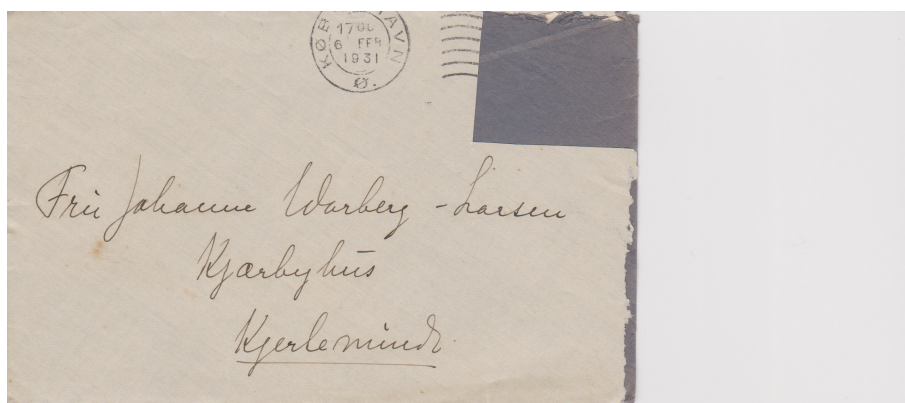 KØBENHAVN Ø.
17
6 FEB
1931
Frú Johanne Warberg-Larsen
Kjærbyhus
Kjerteminde